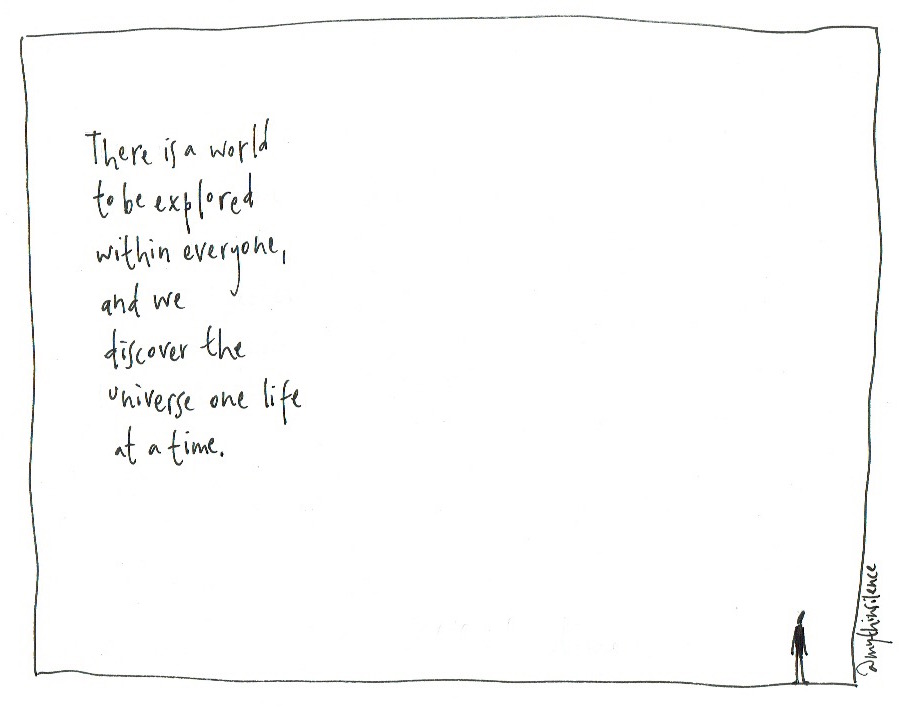 There is a world
to be explored
within everyone,
and we
discover the
universe one life
at a time.
@mythinsilence